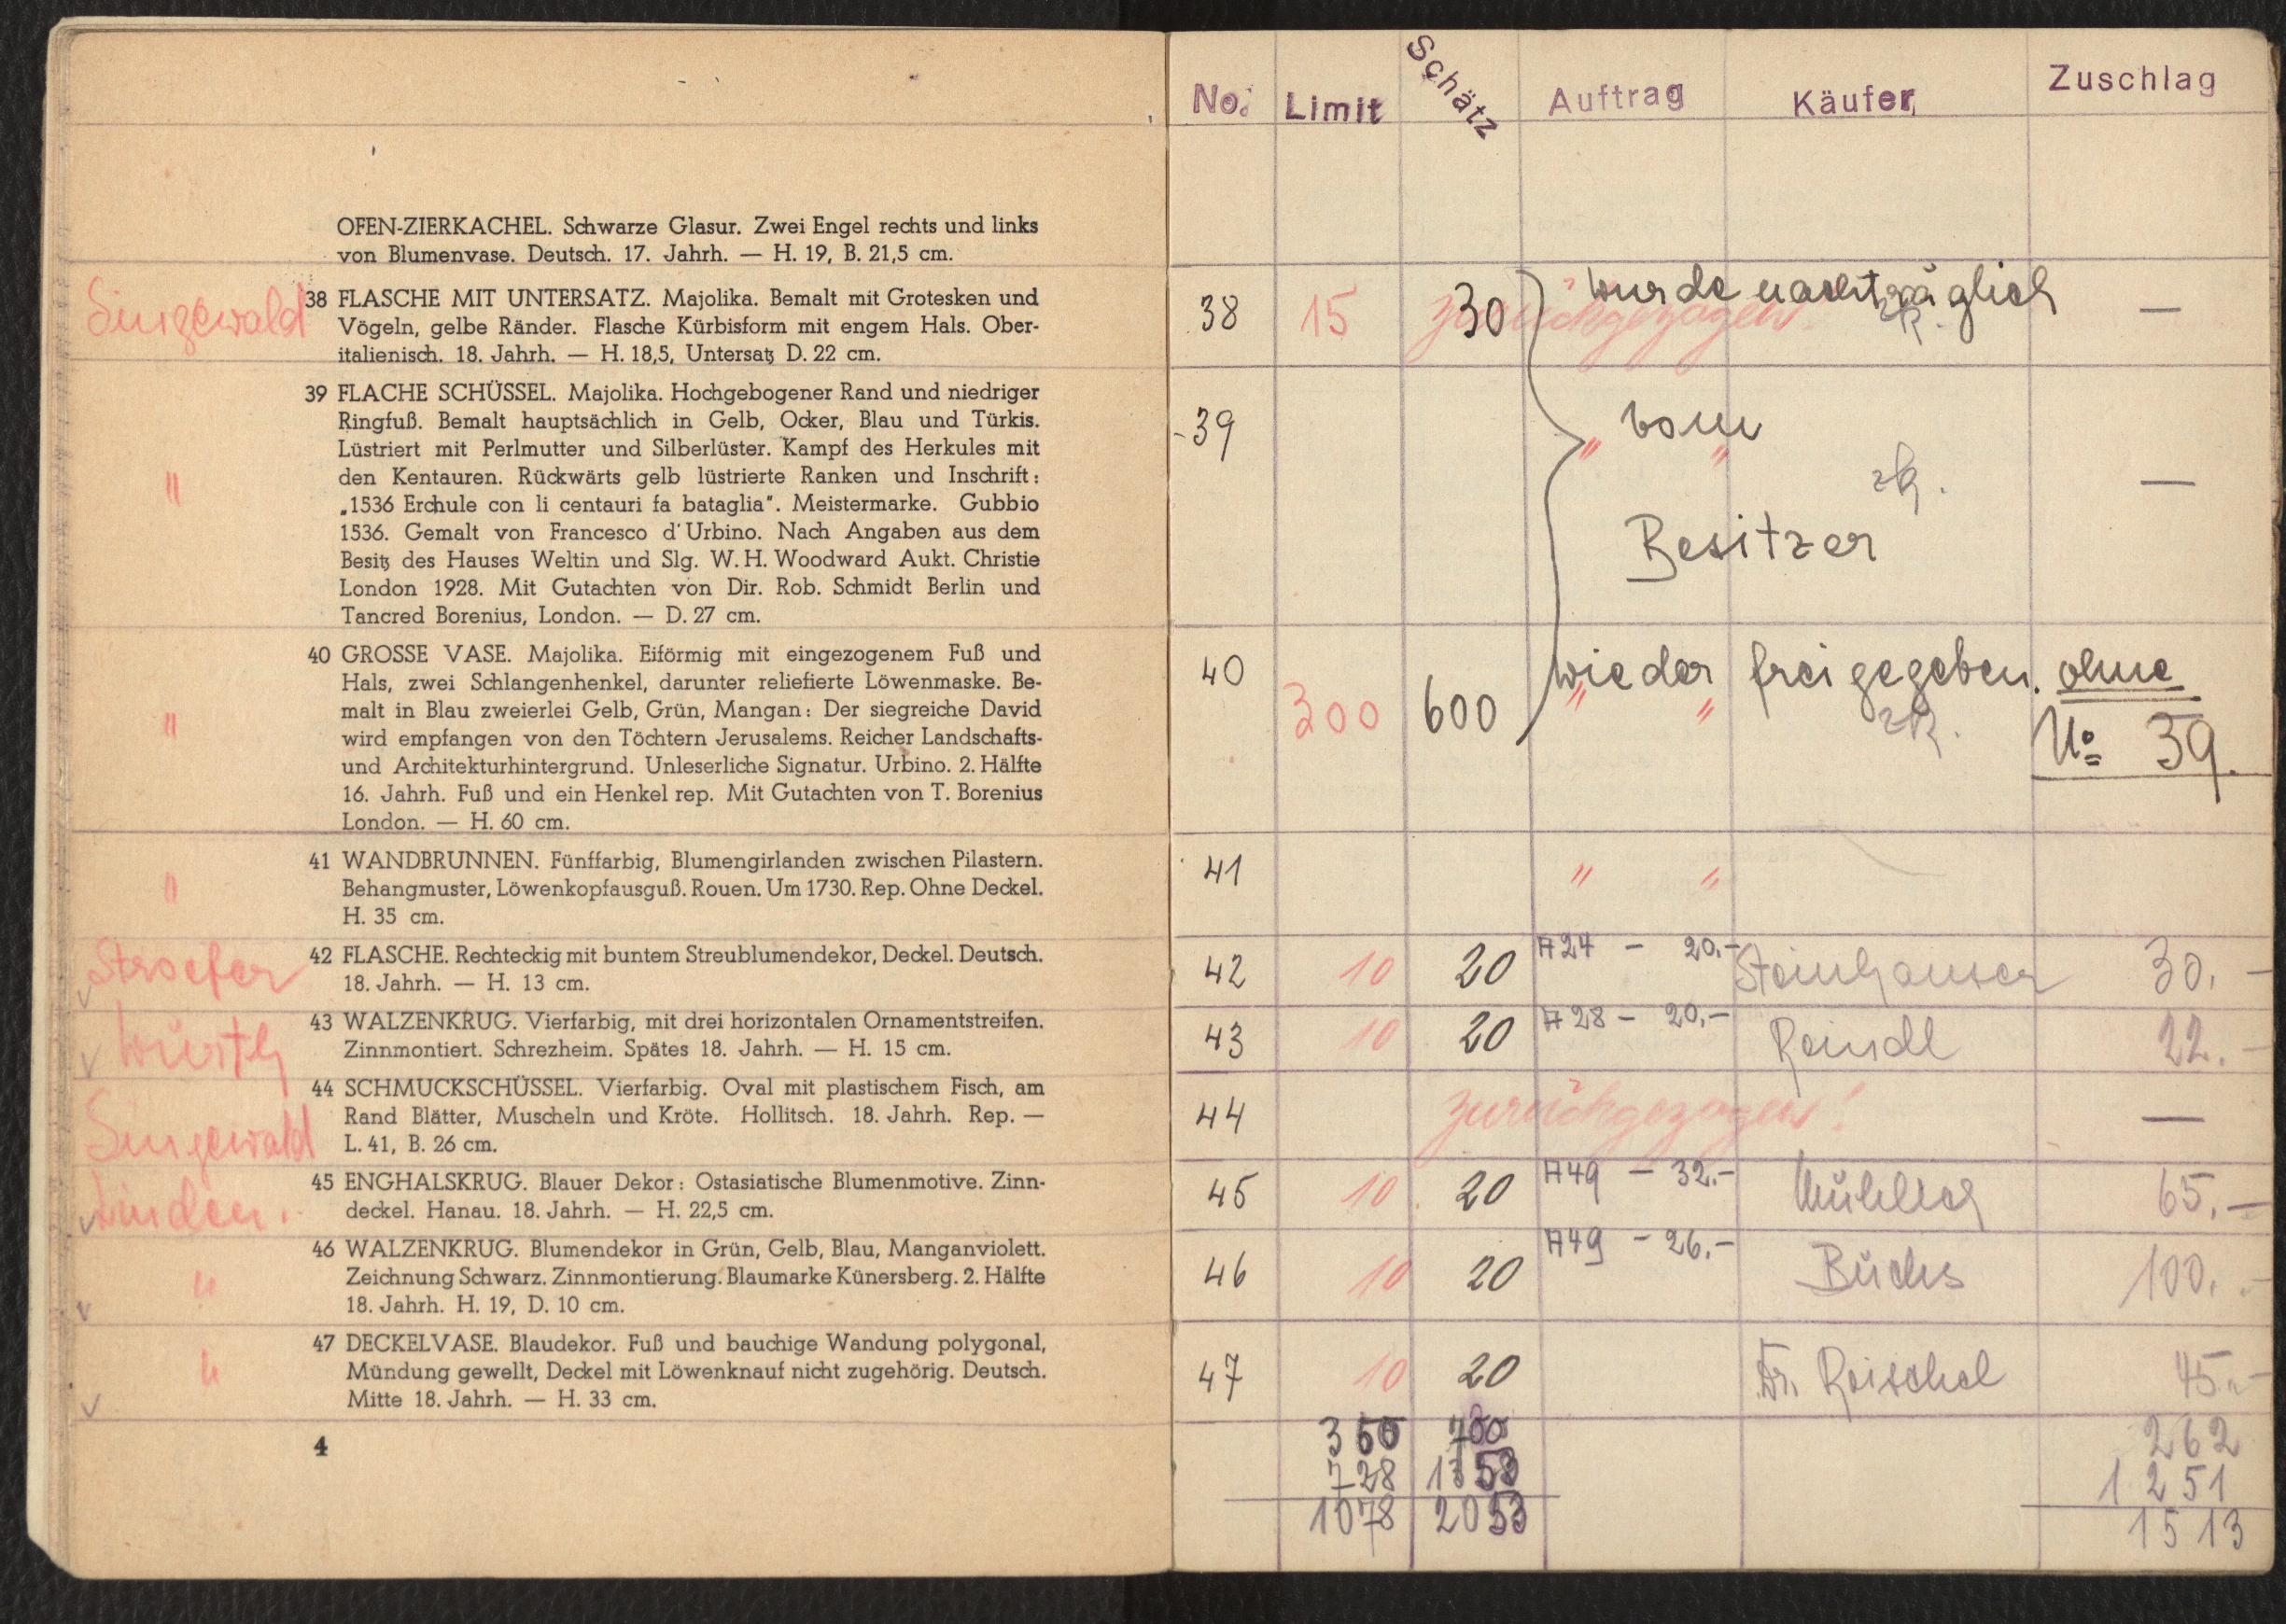 OFEN-ZIERKACHEL. Schwarze Glasur. Zwei Engel rechts und links
von Blumenvase. Deutsch. 17. Jahrh. — H. 19, B. 21,5 cm.
Singewald
38 FLASCHE MIT UNTERSATZ. Majolika. Bemalt mit Grotesken und
Vögeln, gelbe Ränder. Flasche Kürbisform mit engem Hals. Ober-
italienisch. 18. Jahrh. — H. 18,5, Untersatz D. 22 cm.
"
39 FLACHE SCHÜSSEL. Majolika. Hochgebogener Rand und niedriger
Ringfuß. Bemalt hauptsächlich in Gelb, Ocker, Blau und Türkis.
Lüstriert mit Perlmutter und Silberlüster. Kampf des Herkules mit
den Kentauren. Rückwärts gelb lüstrierte Ranken und Inschrift:
„1536 Erchule con li centauri fa bataglia“. Meistermarke. Gubbio
1536. Gemalt von Francesco d'Urbino. Nach Angaben aus dem
Besitz des Hauses Weltin und Slg. W. H. Woodward Aukt. Christie
London 1928. Mit Gutachten von Dir. Rob. Schmidt Berlin und
Tancred Borenius, London. — D. 27 cm.
"
40 GROSSE VASE. Majolika. Eiförmig mit eingezogenem Fuß und
Hals, zwei Schlangenhenkel, darunter reliefierte Löwenmaske. Be-
malt in Blau zweierlei Gelb, Grün, Mangan: Der siegreiche David
wird empfangen von den Töchtern Jerusalems. Reicher Landschafts-
und Architekturhintergrund. Unleserliche Signatur. Urbino. 2. Hälfte
16. Jahrh. Fuß und ein Henkel rep. Mit Gutachten von T. Borenius
London. — H. 60 cm.
"
41 WANDBRUNNEN. Fünffarbig, Blumengirlanden zwischen Pilastern.
Behangmuster, Löwenkopfausguß. Rouen. Um 1730. Rep. Ohne Deckel.
H. 35 cm.
Stroefer
42 FLASCHE. Rechteckig mit buntem Streublumendekor, Deckel. Deutsch.
18. Jahrh. — H. 13 cm.
Würth
43 WALZENKRUG. Vierfarbig, mit drei horizontalen Ornamentstreifen.
Zinnmontiert. Schrezheim. Spätes 18. Jahrh. — H. 15 cm.
Singewald
44 SCHMUCKSCHÜSSEL. Vierfarbig. Oval mit plastischem Fisch, am
Rand Blätter, Muscheln und Kröte. Hollitsch. 18. Jahrh. Rep. —
L. 41, B. 26 cm.
Linden.
45 ENGHALSKRUG. Blauer Dekor: Ostasiatische Blumenmotive. Zinn-
deckel. Hanau. 18. Jahrh. — H. 22,5 cm.
"
46 WALZENKRUG. Blumendekor in Grün, Gelb, Blau, Manganviolett.
Zeichnung Schwarz. Zinnmontierung. Blaumarke Künersberg. 2. Hälfte
18. Jahrh. H. 19, D. 10 cm.
"
47 DECKELVASE. Blaudekor. Fuß und bauchige Wandung polygonal,
Mündung gewellt, Deckel mit Löwenknauf nicht zugehörig. Deutsch.
Mitte 18. Jahrh. — H. 33 cm.
4
No. Limit Schätz Auftrag Käufer Zuschlag
38 15 30 zurückgezogen. wurde nachträglich zR. —
39 " " vom zR. —
Besitzer
40 300 600 " " wieder freigegeben. ohne
zR. No 39.
41 " "
42 10 20 A24 – 20.– Steinhauser 30.–
43 10 20 A28 – 20.– Reindl 22.–
44 zurückgezogen! —
45 10 20 A49 – 32.– 65.–
46 10 20 A49 – 26.– Büchs 100.–
47 10 20 Dr. Reischel 45.–
350 700 262
728 1353 1251
1078 2053 1513